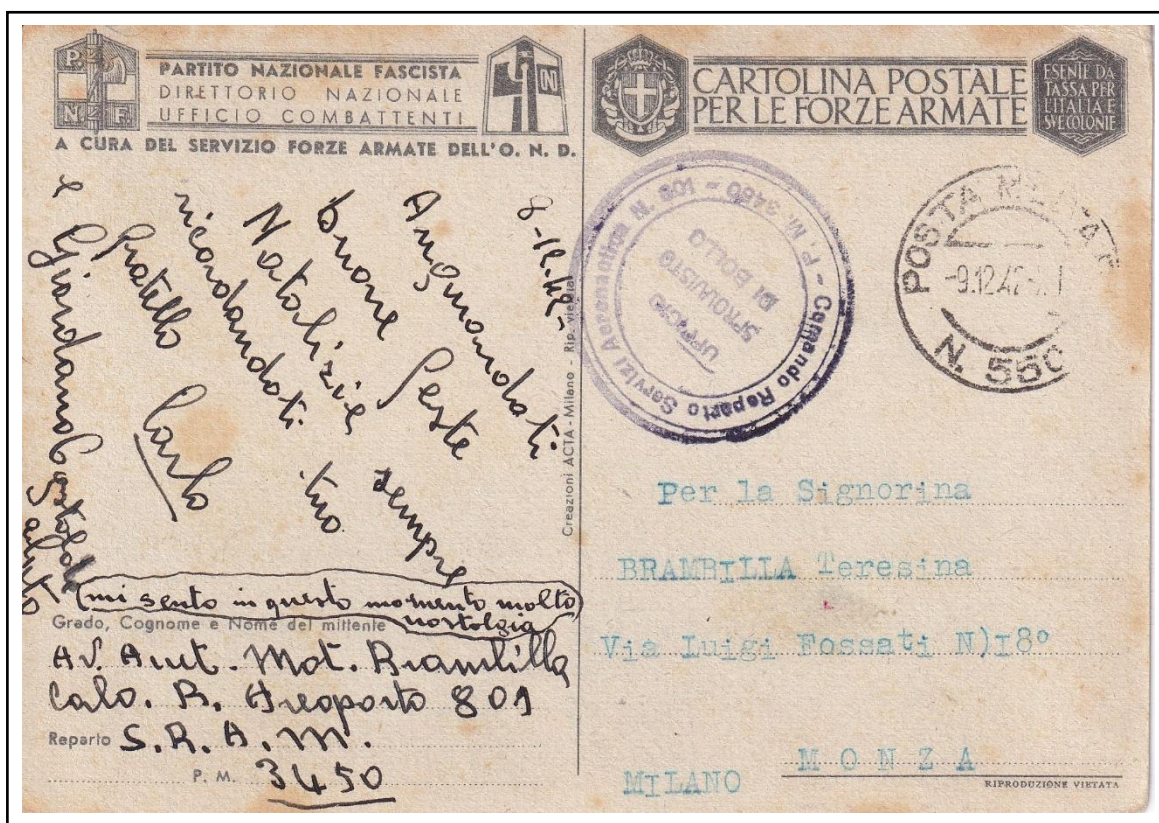 P. N. F.
PARTITO NAZIONALE FASCISTA
DIRETTORIO NAZIONALE
UFFICIO COMBATTENTI
A CURA DEL SERVIZIO FORZE ARMATE DELL'O. N. D.
8-12-42-
Augurandoti
buone Feste
Natalizie sempre
ricordandoti tuo
fratello Carlo
e Giordano
(mi sento in questo momento molto
nostolgia)
Grado, Cognome e Nome del mittente
Av. Aiut. Mot. Brambilla
Calo. R. Areoporto 801
Reparto S. R. A. M.
P. M. 3450
Creazioni ACTA - Milano - Rip. vietata
CARTOLINA POSTALE
PER LE FORZE ARMATE
ESENTE DA
TASSA PER
L'ITALIA E
SUE COLONIE
Comando Reparto Servizi Aeronautica N. 801 - P. M. 3450
UFFICIO
SPROVVISTO
DI BOLLO
POSTA MILITAR
-9.12.42
N. 550
Per la Signorina
BRAMBILLA Teresina
Via Luigi Fossati N)I8°
MONZA
MILANO
RIPRODUZIONE VIETATA